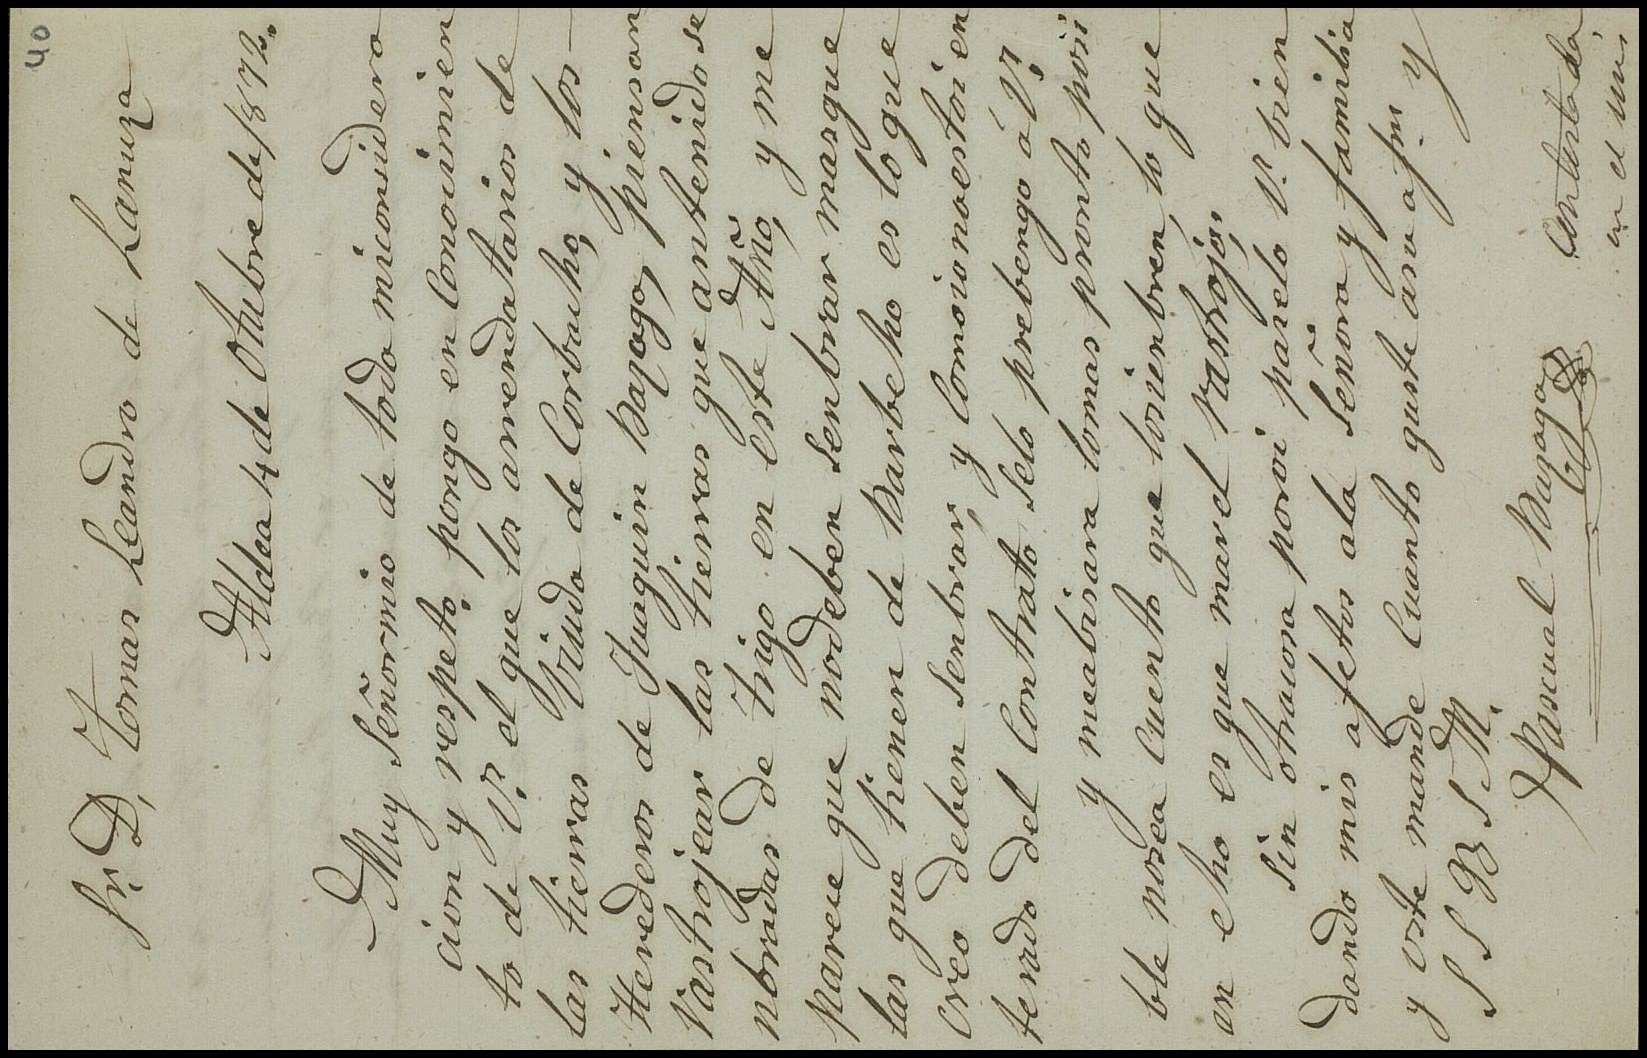 40
Sr. D. Tomas Leandro de Lanuza
Aldea 14 de Otubre de 1872.
Muy Señormio de todo miconsidera
cion y respeto, pongo en Conocimien
to de V. el que los arrendatarios de
las tierras Viudo de Corbacho, y los
Herederos de Juaquin Bazago, piensan
Rastrojear las tierras que antenidose
nbradas de trigo en este Año, y me
parece que nodeben senbrar masque
las que tienen de Barbecho es lo que
creo deben senbrar, y Comoionoestoien
terado del Contrato selo prebengo á V.
y meabisara lomas pronto posi
ble nosea Cuento que losienbren, lo que
an echo es quemar el rastrojo,
Sin otracosa poroi paselo V. bien
dando mis afetos ala Señora y familia
y oste mande Cuanto guste asu afmo. y
S S Q B S M.
Pascual Bazago
Contestada
en el mis